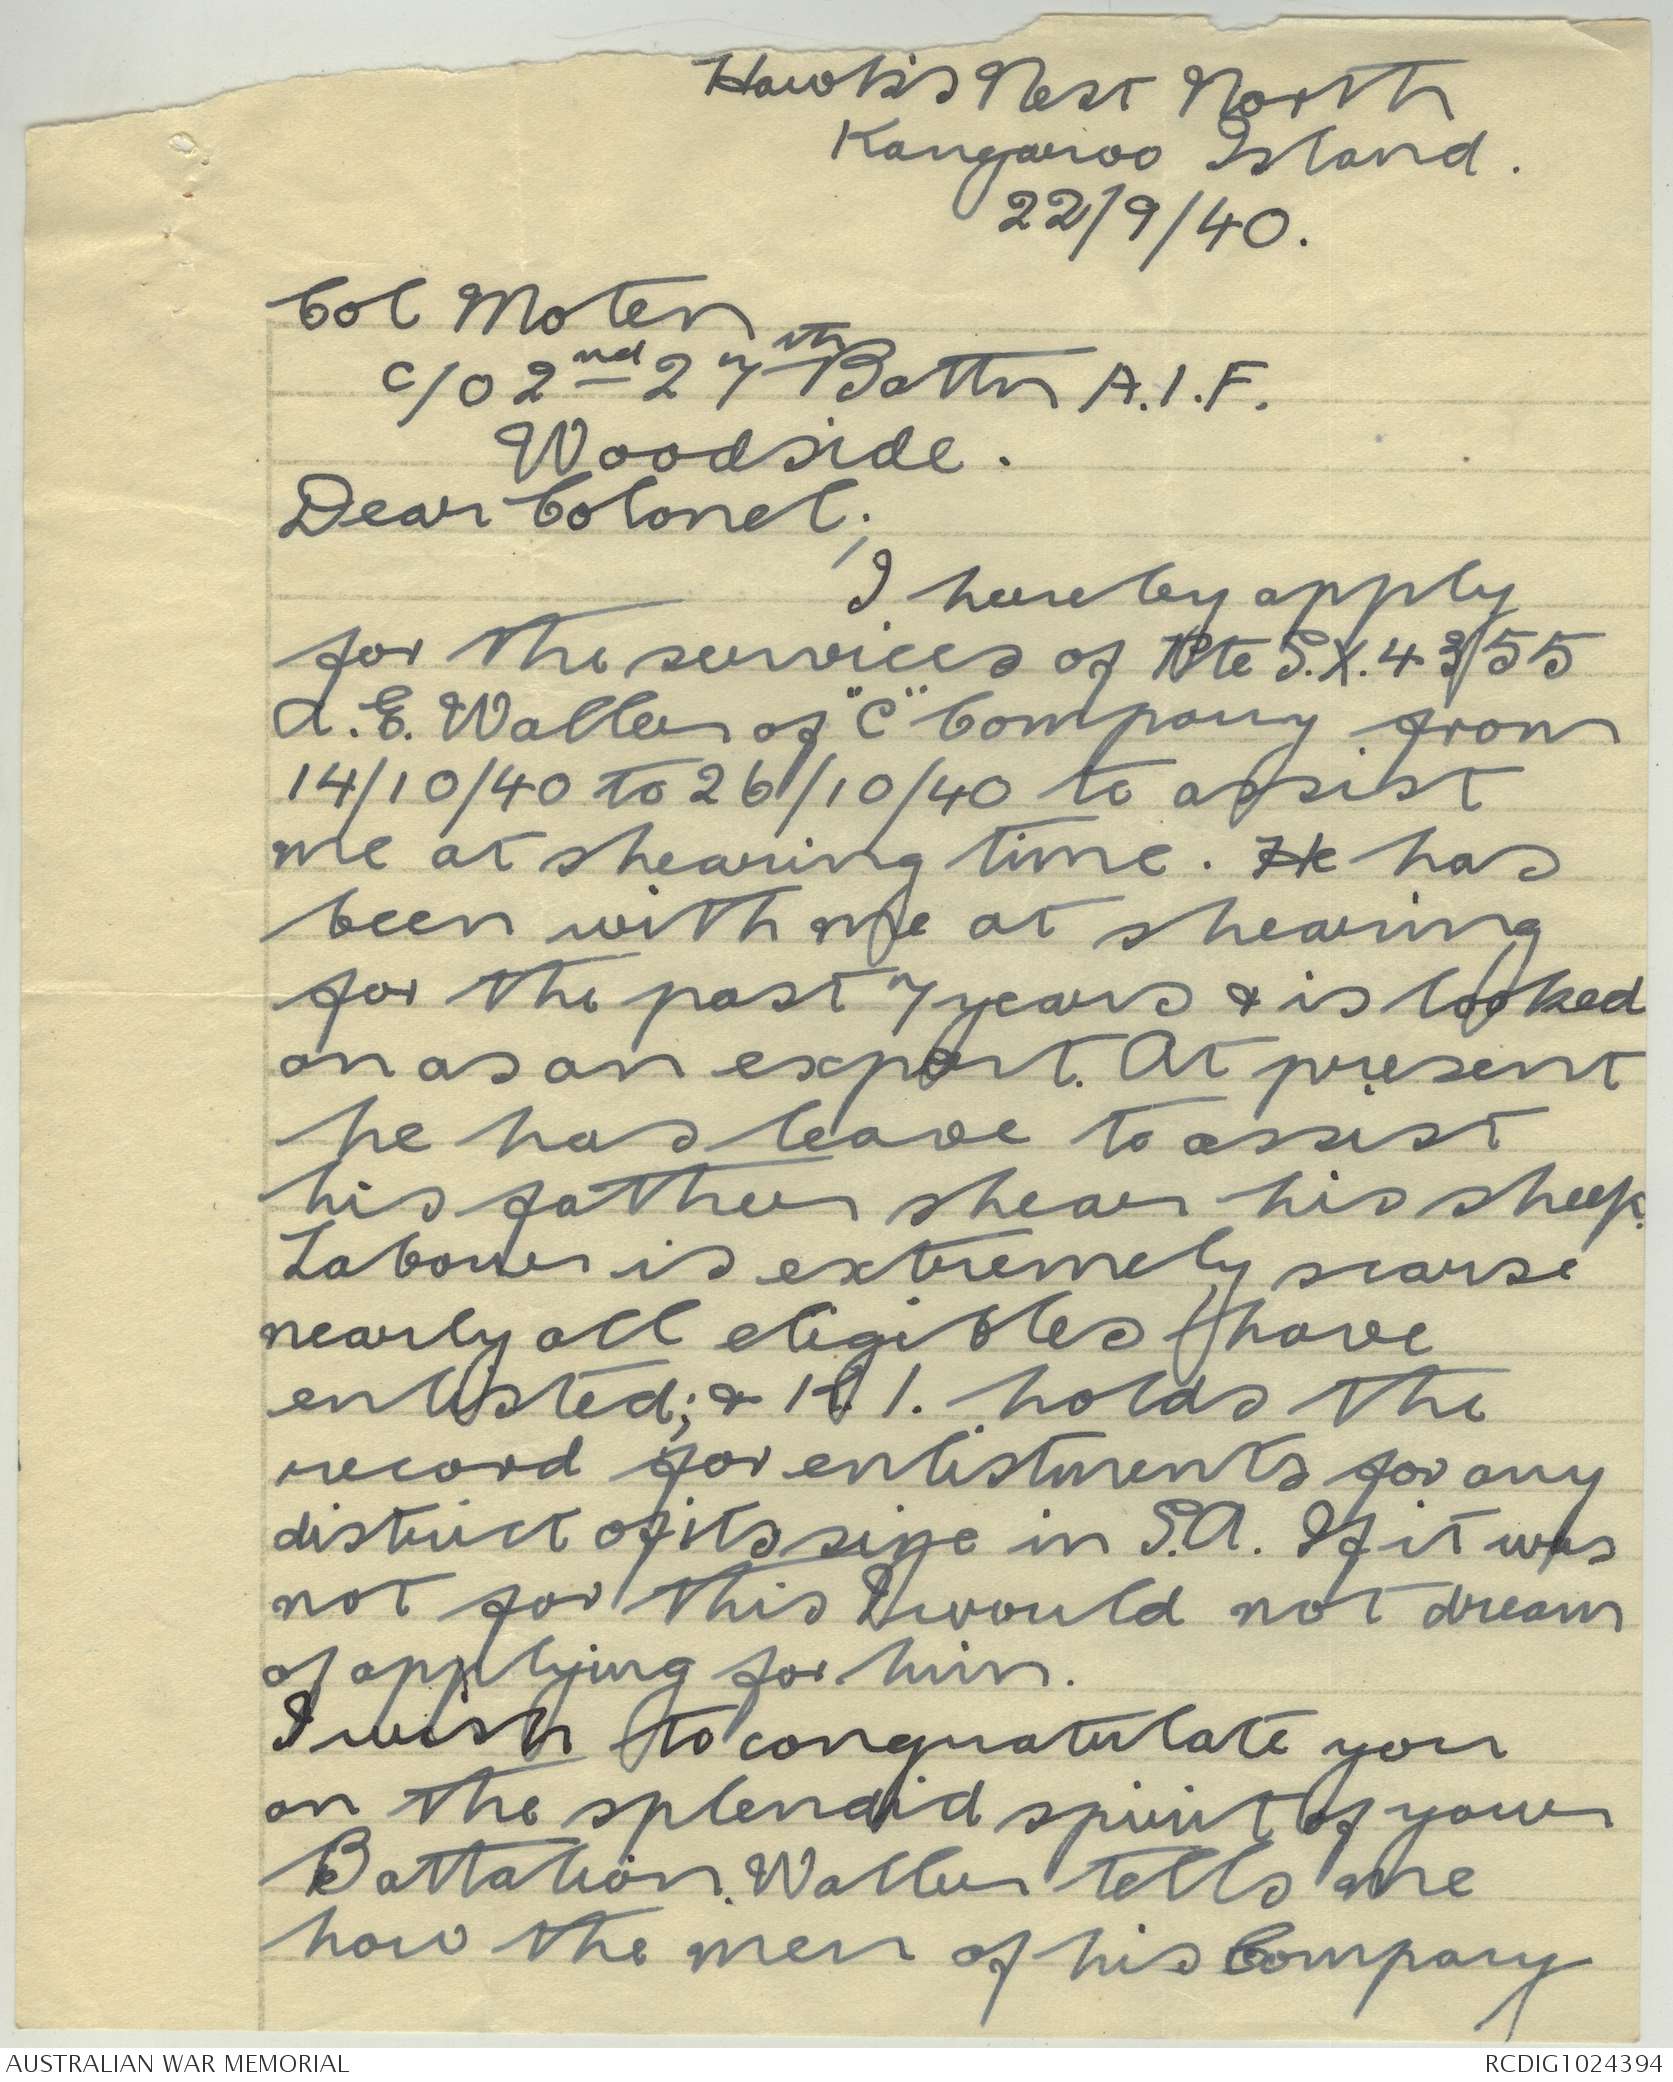 Hawk's Nest North
Kangaroo Island.
22/9/40.
Col Moten
c/o 2nd 27th Battn A.I.F.
Woodside.
Dear Colonel;
I hereby apply
for the services of Pte S.X.4355
A.E. Waller of "C" Company from
14/10/40 to 26/10/40 to assist
me at shearing time. He has
been with me at shearing
for the past 7 years & is looked
on as an expert. At present
he has leave to assist
his father shear his sheep.
Labour is extremely scarse
nearly all eligibles have
enlisted; & K.I. holds the
record for enlistments for any
district of its size in S.A. If it was
not for this I would not dream
of applying for him.
I wish to congratulate you
on the splendid spirit of your
Battalion. Waller tells me
how the men of his Company
AUSTRALIAN WAR MEMORIAL
RCDIG1024394